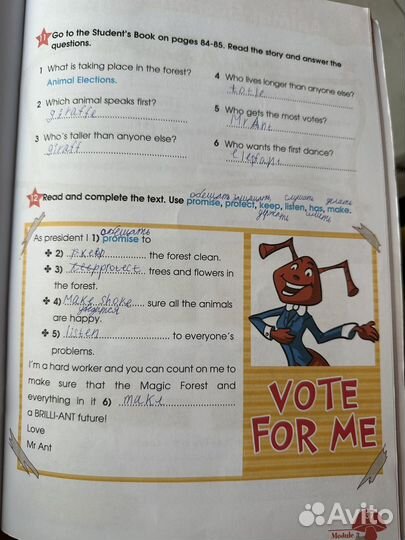 11 Go to the Student's Book on pages 84-85. Read the story and answer the
questions.
1 What is taking place in the forest?
Animal Elections.
2 Which animal speaks first?
giraffe
3 Who's taller than anyone else?
giraff
4 Who lives longer than anyone else?
5 Who gets the most votes?
Mr Ant
6 Who wants the first dance?
обещать защищать слушать делать
12 Read and complete the text. Use promise, protect, keep, listen, has, make.
держать иметь
обещать
As president I 1) promise to
2) keep the forest clean.
3) protect trees and flowers in
the forest.
4) make sure all the animals
are happy.
5) listen to everyone's
problems.
I'm a hard worker and you can count on me to
make sure that the Magic Forest and
everything in it 6) make
a BRILLI-ANT future!
Love
Mr Ant
VOTE
FOR ME
Module 3
Avito